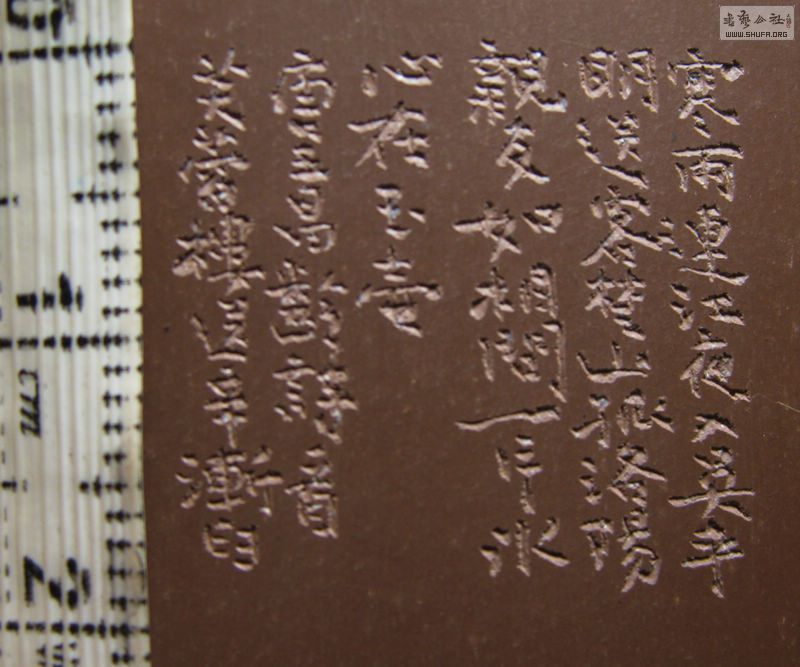 寒雨連江夜入吳平
明送客楚山孤洛陽
親友如相問一片冰
心在玉壺
王昌齡詩首
芙蓉樓送辛漸
書藝公社
WWW.SHUFA.ORG
cm